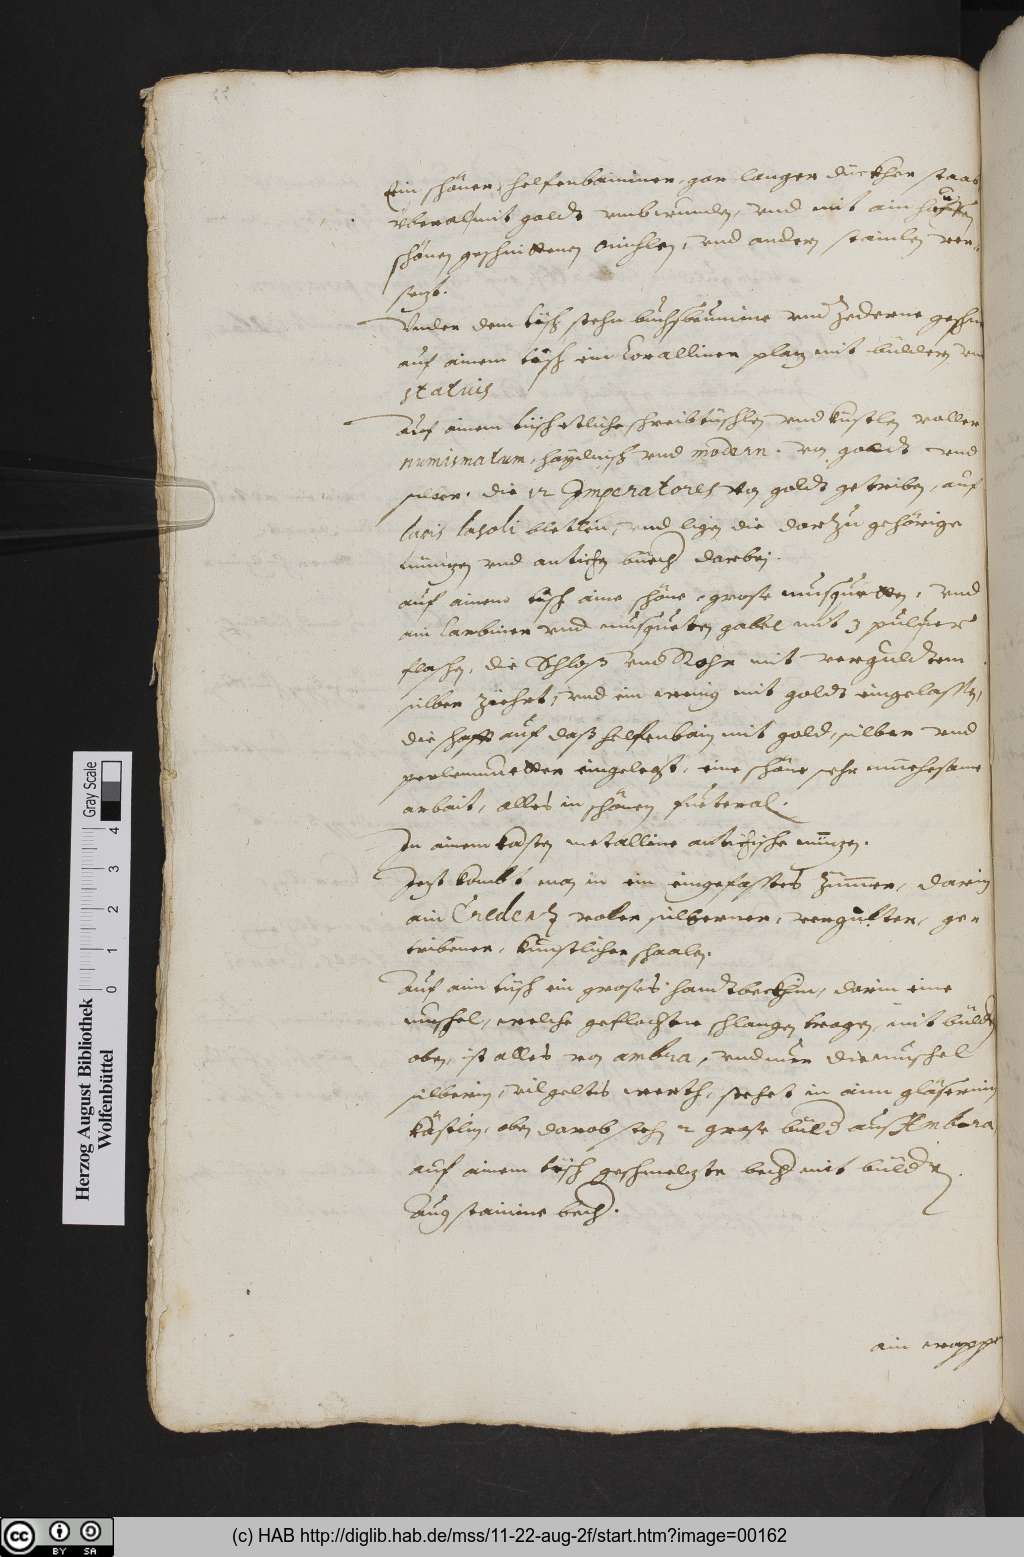 Ein schöner, helfenbaininer, gar langer duckher staab
überal mit goldt umbwunden, und mit ain hauffen
schönen geschnittenen Onichlen, und andern stainlen ver-
sezt.
Under dem tisch stehn buchsbaumine und Zederne geschir
auf ainem tisch ein Corallinen plaz mit bildern und
statuis
Auf ainem tisch etliche schreibtischlen und kistlen voller
numismatum, haydnisch und modern. von goldt und
silber. die 12 Imperatores von goldt getriben, auf
lapis lasoli bletlein, und ligen die darzu gehörige
münzen und antichen büech darbei.
auf ainem tisch aine schöne grosse musquetten, und
ain Carbiner und musqueten gabel mit 3 pulver
flaschen, die Schloss und Rohr mit vergultem
silber Ziehrt, und ein wenig mit goldt eingelassen,
die schafft auf dass helfenbain mit gold, silber und
perlenmuetter eingelegt, eine schöne sehr muehesame
arbait, alles in schönen fueteral.
In ainem kasten metalline antichische münzen.
Jezt kombt man in ein eingefasstes Zimmer, darin
ain Credenz voler silberner, vergulter, ge-
tribener, kunstlicher schaalen.
Auf aim tisch ein grosses handtbeckhin, darin eine
muschel, welche geflochtne schlangen tragen, mit bildern
oben, ist alles von ambra, und nur die muschel
silberin, vil geltes werth, stehet in aim gläsernin
kästlin, oben darob stehn 2 grose bild aus Ambora
auf ainem tisch geschmelzte bech mit bildern.
Augstainine bech.
ain wapppe
Herzog August Bibliothek
Wolfenbüttel
Gray Scale
0 1 2 3 4
(c) HAB http://diglib.hab.de/mss/11-22-aug-2f/start.htm?image=00162
cc BY SA